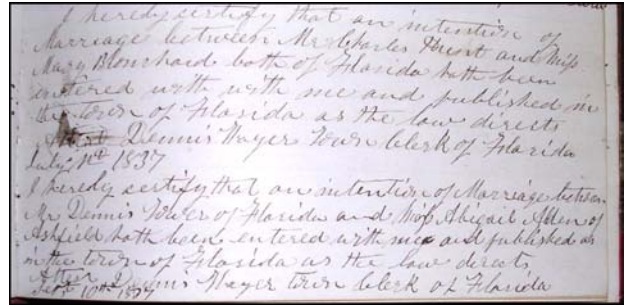 I heredy sertify that an intention of
Marriage between Mr Charles Hunt and Miss
Mary Blonchard both of Florida hath been
entered with with me and published in
the town of Florida as the law directs
Attest Dennis Thayer Town Clerk of Florida
July 1837
I heredy sertify that an intention of Marriage between
Mr Dennis Tower of Florida and Miss Abigail Allen of
Ashfield hath been entered with me and published as
in the town of Florida as the law directs
Attest Dennis Thayer town Clerk of Florida
Sept 10th 1837